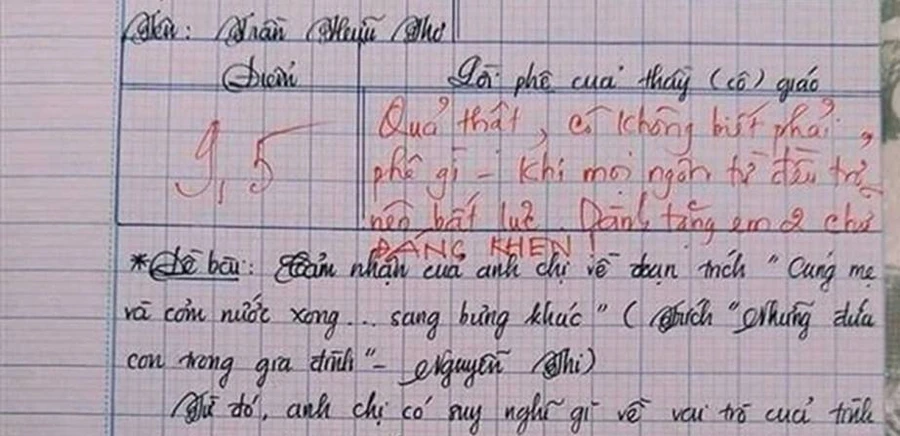 Tên: Trần Thuỵ Thơ
Điểm
Lời phê của thầy (cô) giáo
9,5
Quả thật, cô không biết phải
phê gì - Khi mọi ngôn từ đều trở
nên bất lực. Dành tặng em 2 chữ
ĐÁNG KHEN!
*Đề bài: Cảm nhận của anh chị về đoạn trích "Cúng mẹ
và cơm nước xong... sang bưng khác" (Trích "Những đứa
con trong gia đình" - Nguyễn Thi)
Từ đó, anh chị có suy nghĩ gì về vai trò của tình